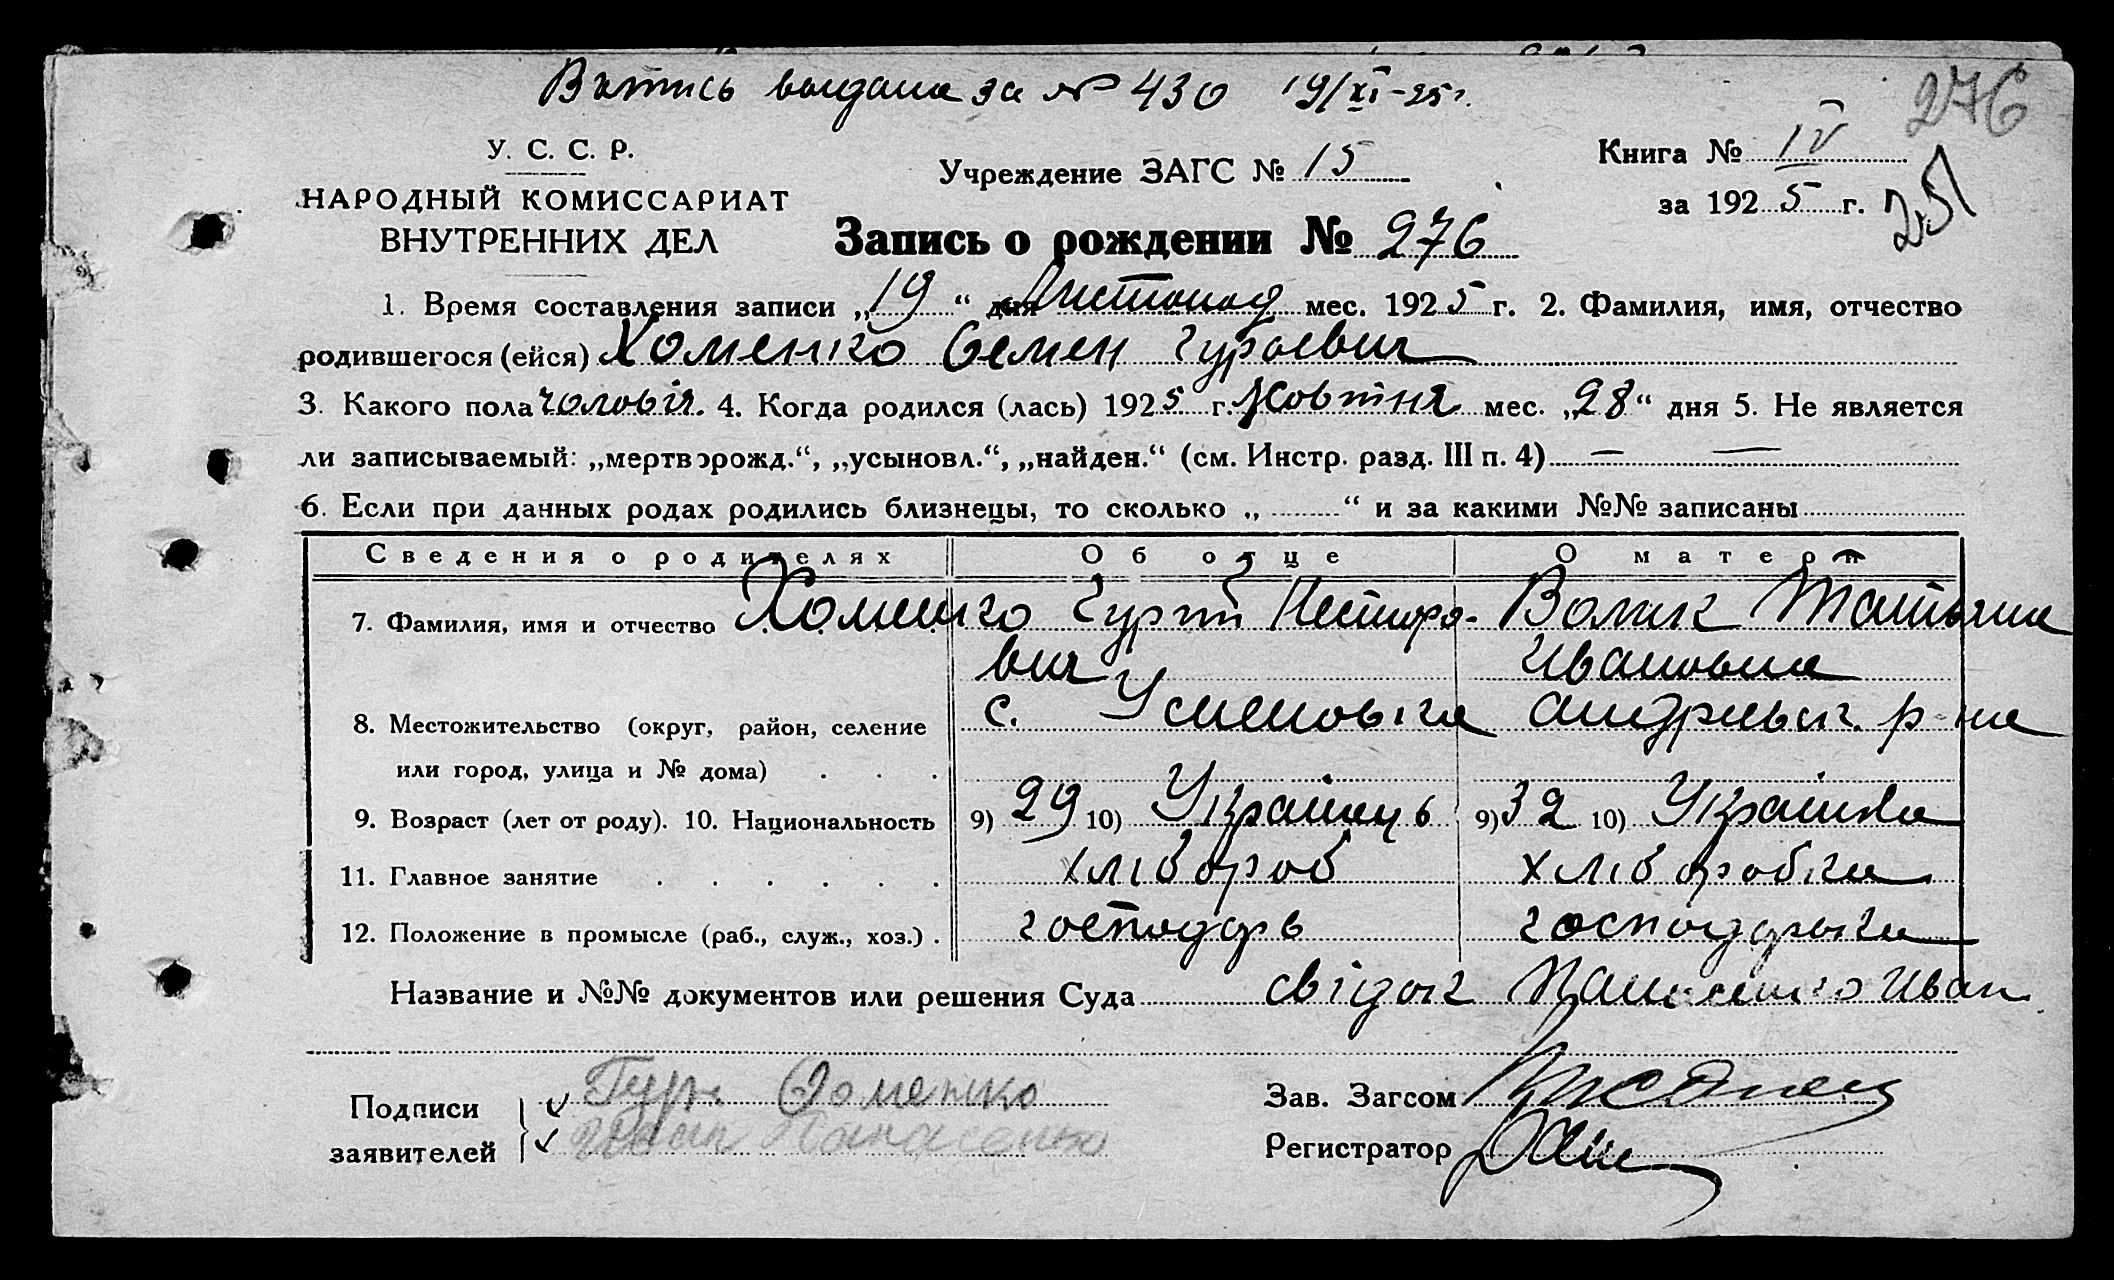 Витись видана за № 430 19/XI-25 г.
276
У. С. С. Р.
НАРОДНЫЙ КОМИССАРИАТ
ВНУТРЕННИХ ДЕЛ
Учреждение ЗАГС № 15
Книга № IV
за 1925 г.
251
Запись о рождении № 276
1. Время составления записи „19“ дня Листопад мес. 1925 г. 2. Фамилия, имя, отчество
родившегося (ейся) Хоменко Семен Гурьевич
3. Какого пола чоловіч. 4. Когда родился (лась) 1925 г. Жовтня мес. „28“ дня 5. Не является
ли записываемый: „мертворожд.“, „усыновл.“, „найден.“ (см. Инстр. разд. III п. 4) — —
6. Если при данных родах родились близнецы, то сколько „ “ и за какими №№ записаны
Сведения о родителях Об отце О матери
7. Фамилия, имя и отчество Хоменко Гурій Нестеро- Волик Татьяна
вич Ивановна
8. Местожительство (округ, район, селение с. Андреевск. р-на
или город, улица и № дома)
9. Возраст (лет от роду). 10. Национальность 9) 29 10) Украінець 9) 32 10) Украінка
11. Главное занятие хлібороб хліборобка
12. Положение в промысле (раб., служ., хоз.) господарь господарька
Название и №№ документов или решения Суда свідок Панасенко Иван
Подписи заявителей Гурій Хоменко
Иван Панасенко
Зав. Загсом
Регистратор